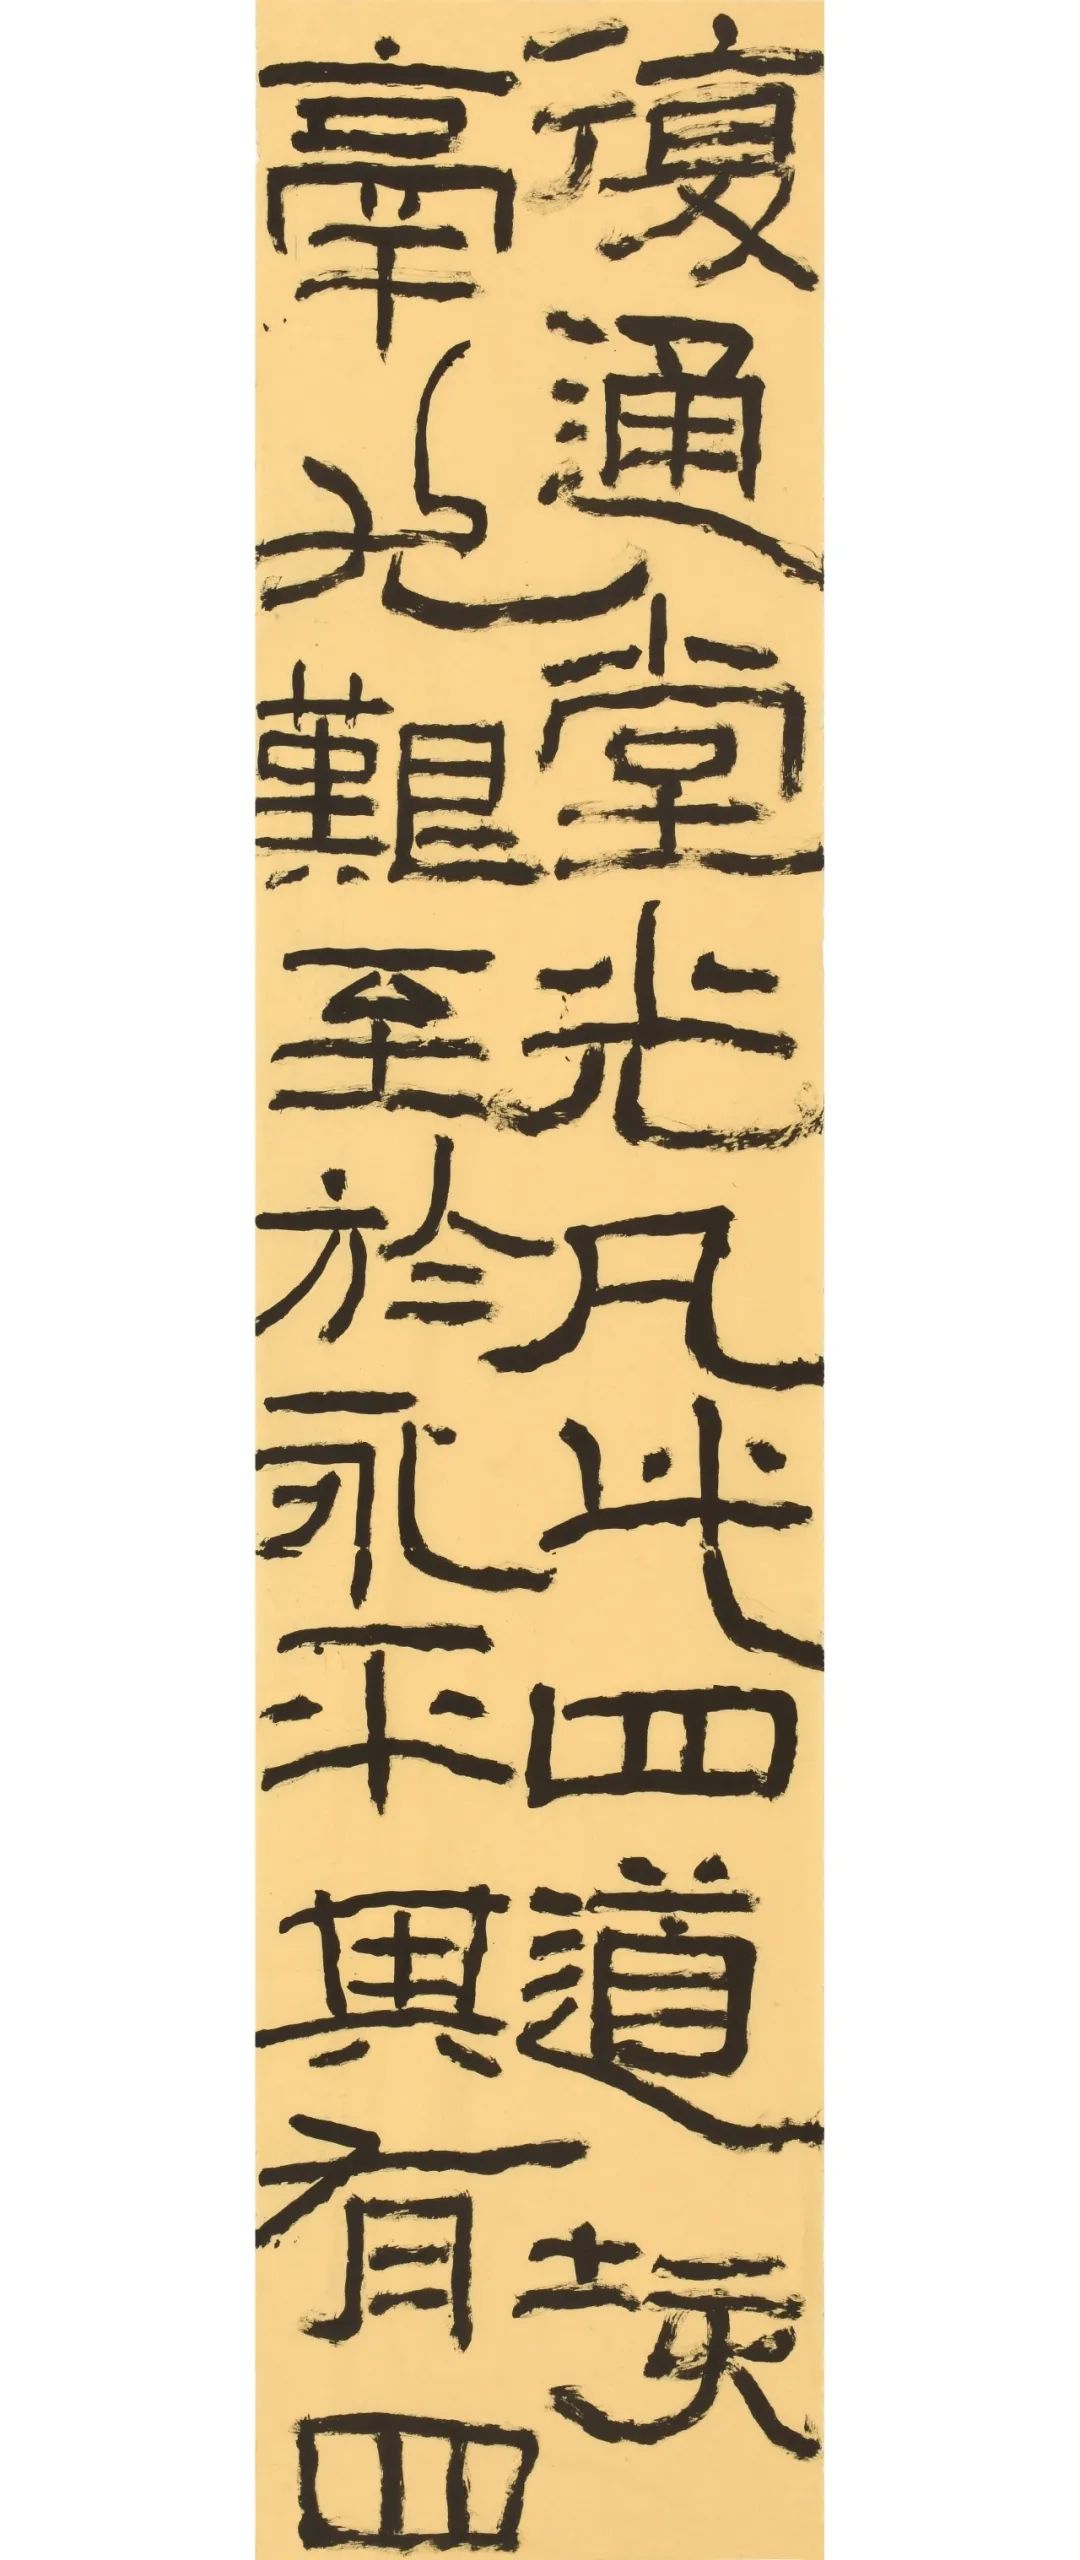 復通堂光凡此四道垓
鬲尤艱至於永平其有四